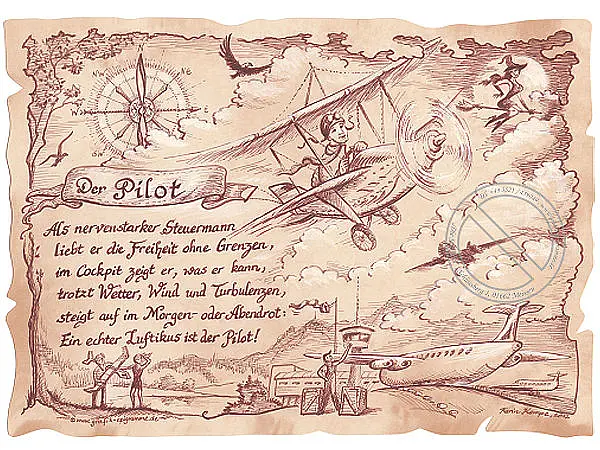 NE
E
SW
Der Pilot
Als nervenstarker Steuermann
liebt er die Freiheit ohne Grenzen,
im Cockpit zeigt er, was er kann,
trotzt Wetter, Wind und Turbulenzen,
steigt auf im Morgen- oder Abendrot:
Ein echter Luftikus ist der Pilot!